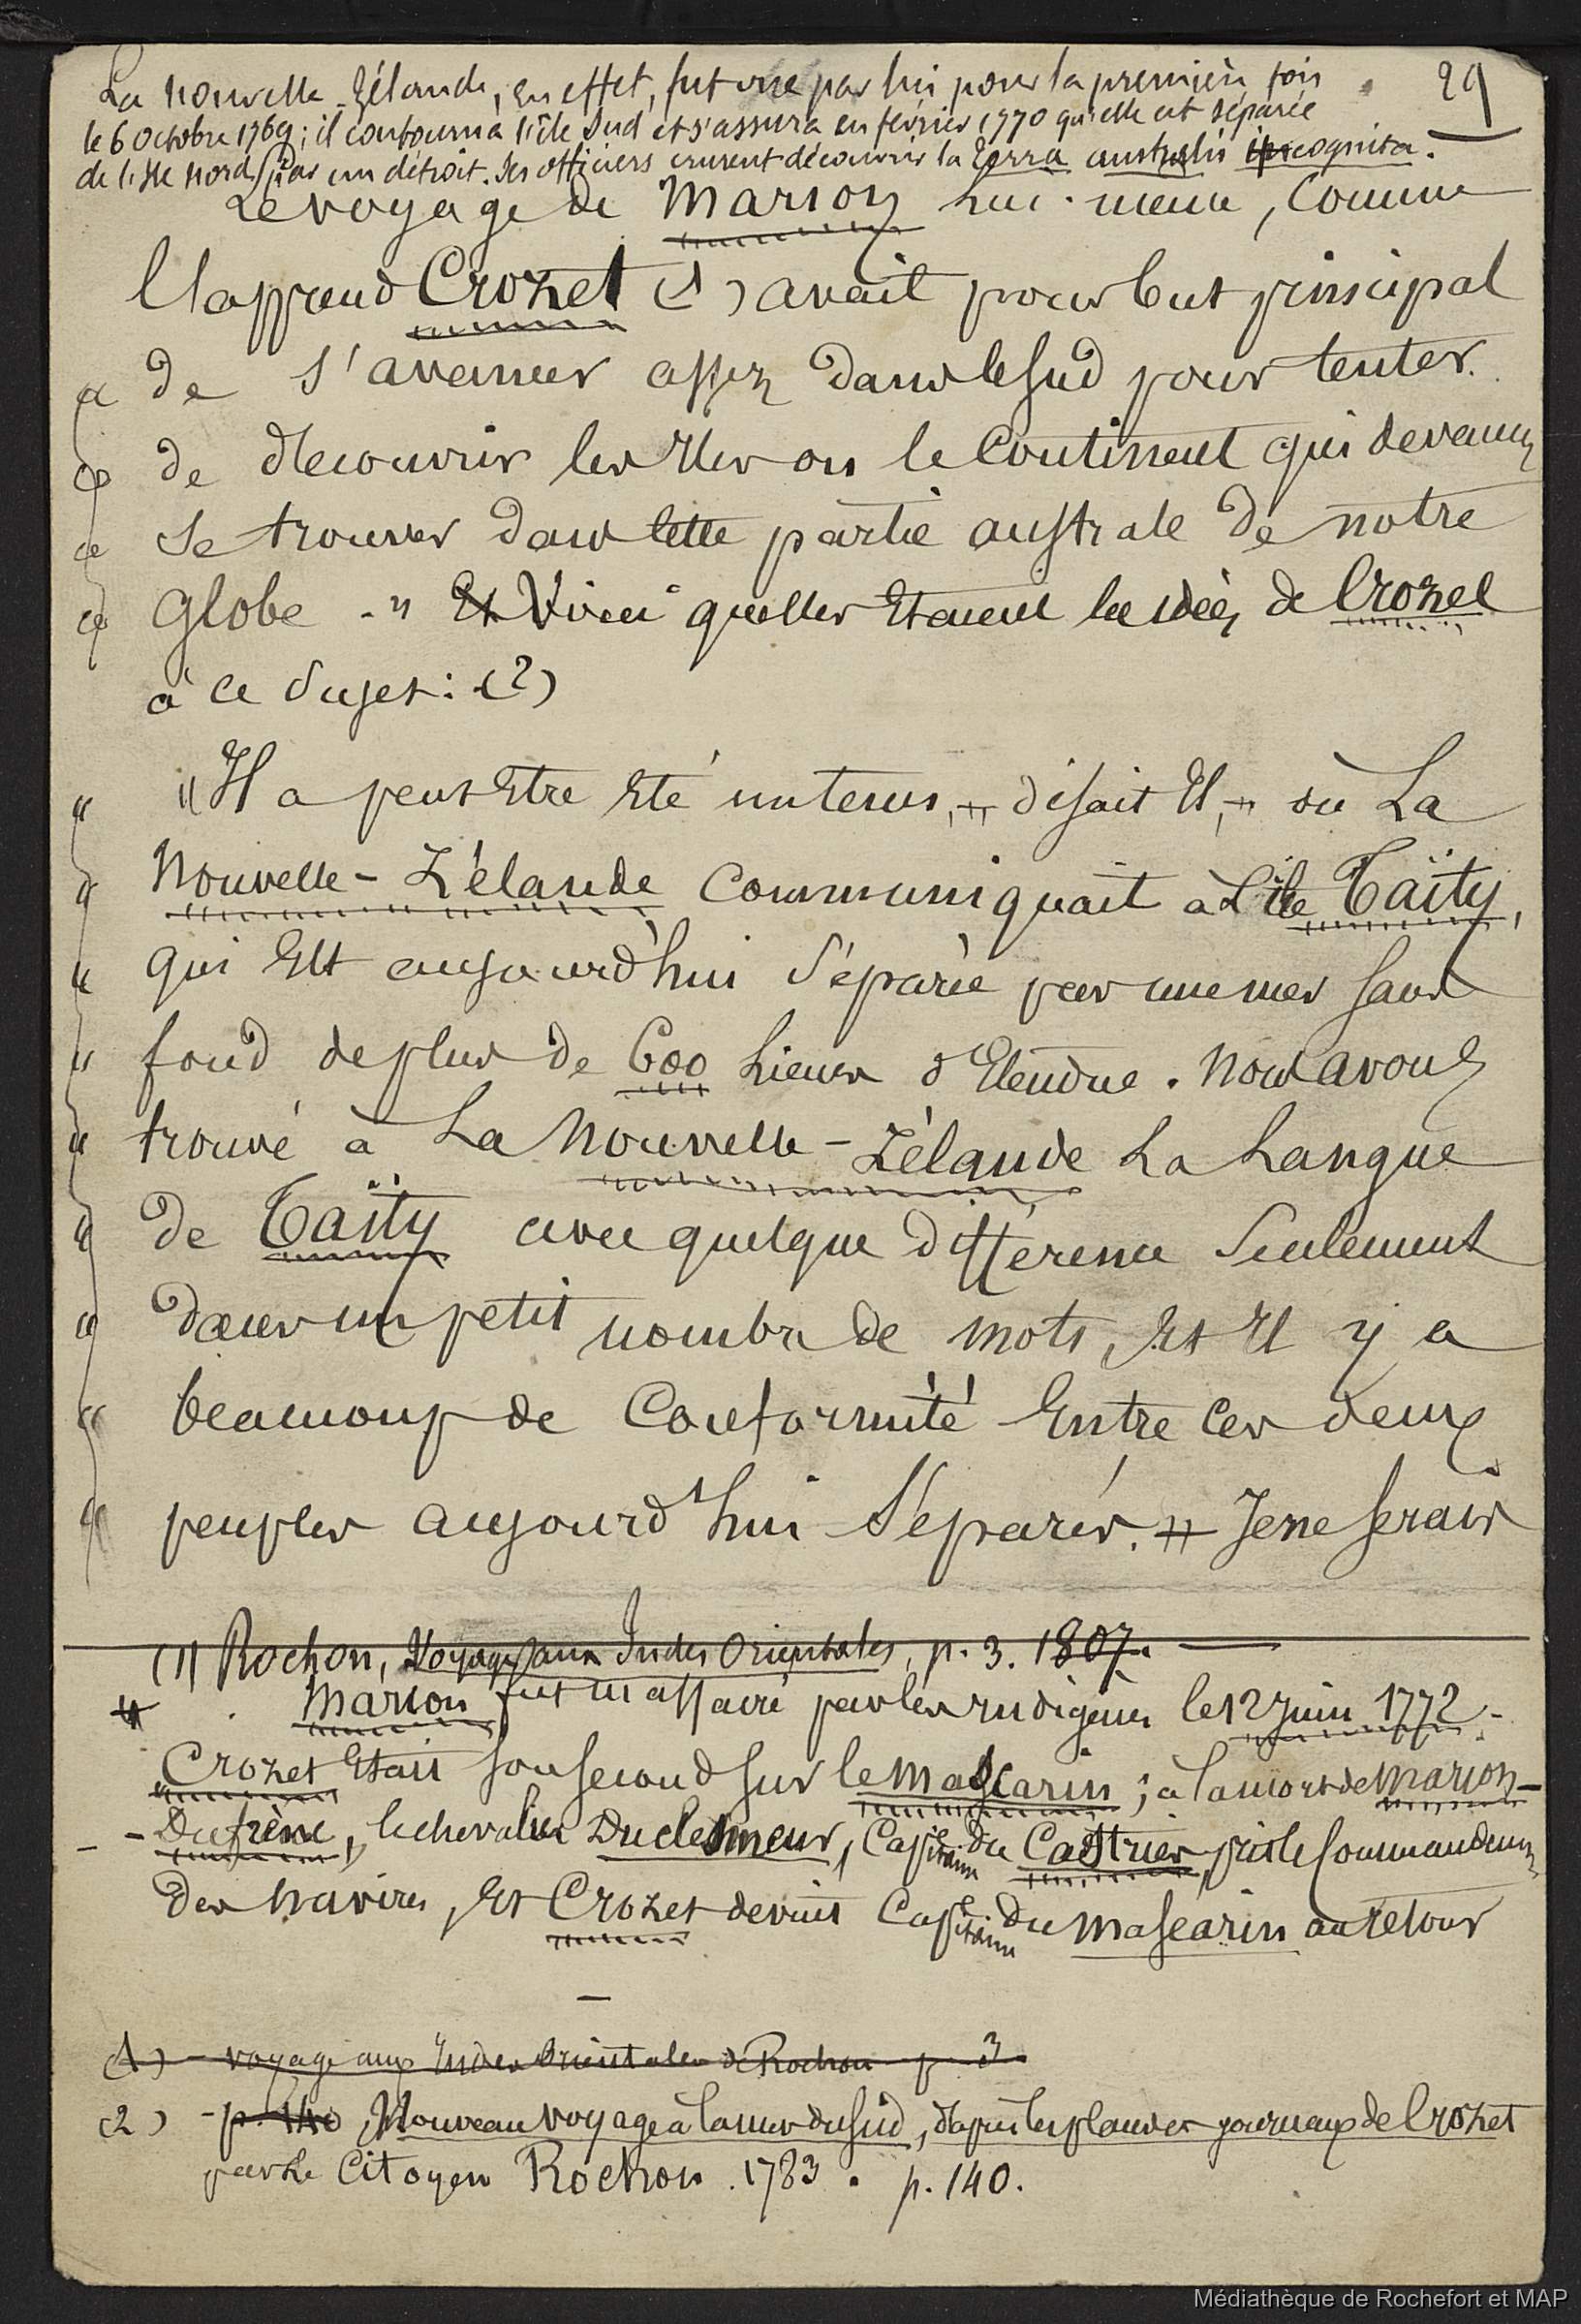 La Nouvelle-Zélande, en effet, fut vue par lui pour la première fois
29
le 6 Octobre 1769; il contourna l'île Sud et s'assura en février 1770 qu'elle est séparée
de l'Ile Nord par un détroit. Ses officiers crurent découvrir la Terra australis incognita.
Le voyage de Marion Lui-même, Comme
l'apprend Crozet (1) avait pour but principal
de s'avancer assez dans le Sud pour tenter
de découvrir les Iles ou le Continent qui devaient
se trouver dans cette partie australe de notre
Globe ." Et Voici quelles Etaient les idées de Crozet
à ce Sujet : (2)
"Il a peut Etre Eté un tems, " disait Il, " où La
Nouvelle-Zélande Communiquait à L'île Taïty,
qui Est aujourd'hui Séparée par une mer sans
fond de plus de 600 Lieues d'Etendue. Nous avons
trouvé à La Nouvelle-Zélande La Langue
de Taïty avec quelque différence Seulement
dans un petit nombre de mots, Et Il y a
beaucoup de Conformité Entre Ces deux
peuples aujourd'hui Séparés. " Je ne serais
(1) Rochon, Voyage aux Indes Orientales, p. 3. 1807.
Marion fut massacré par les Indigènes le 12 Juin 1772.-
Crozet Etait son second sur le Mascarin ; à la mort de Marion-
-Dufrène, le chevalier Duclesmeur, Capitaine du Castries, prit le Commandement
des Navires, Et Crozet devint Capitaine du Mascarin au retour
(1) - voyage aux Indes Orientales de Rochon p. 3.
(2) - p. 140 Nouveau voyage à la mer du Sud, d'après les plans et journaux de Crozet
par Le Citoyen Rochon. 1783. p. 140.
Médiathèque de Rochefort et MAP